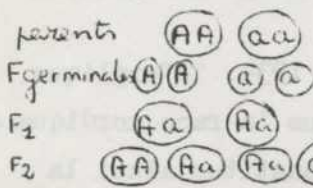 parents AA aa
F germinales A A a a
F1 Aa Aa
F2 AA Aa Aa